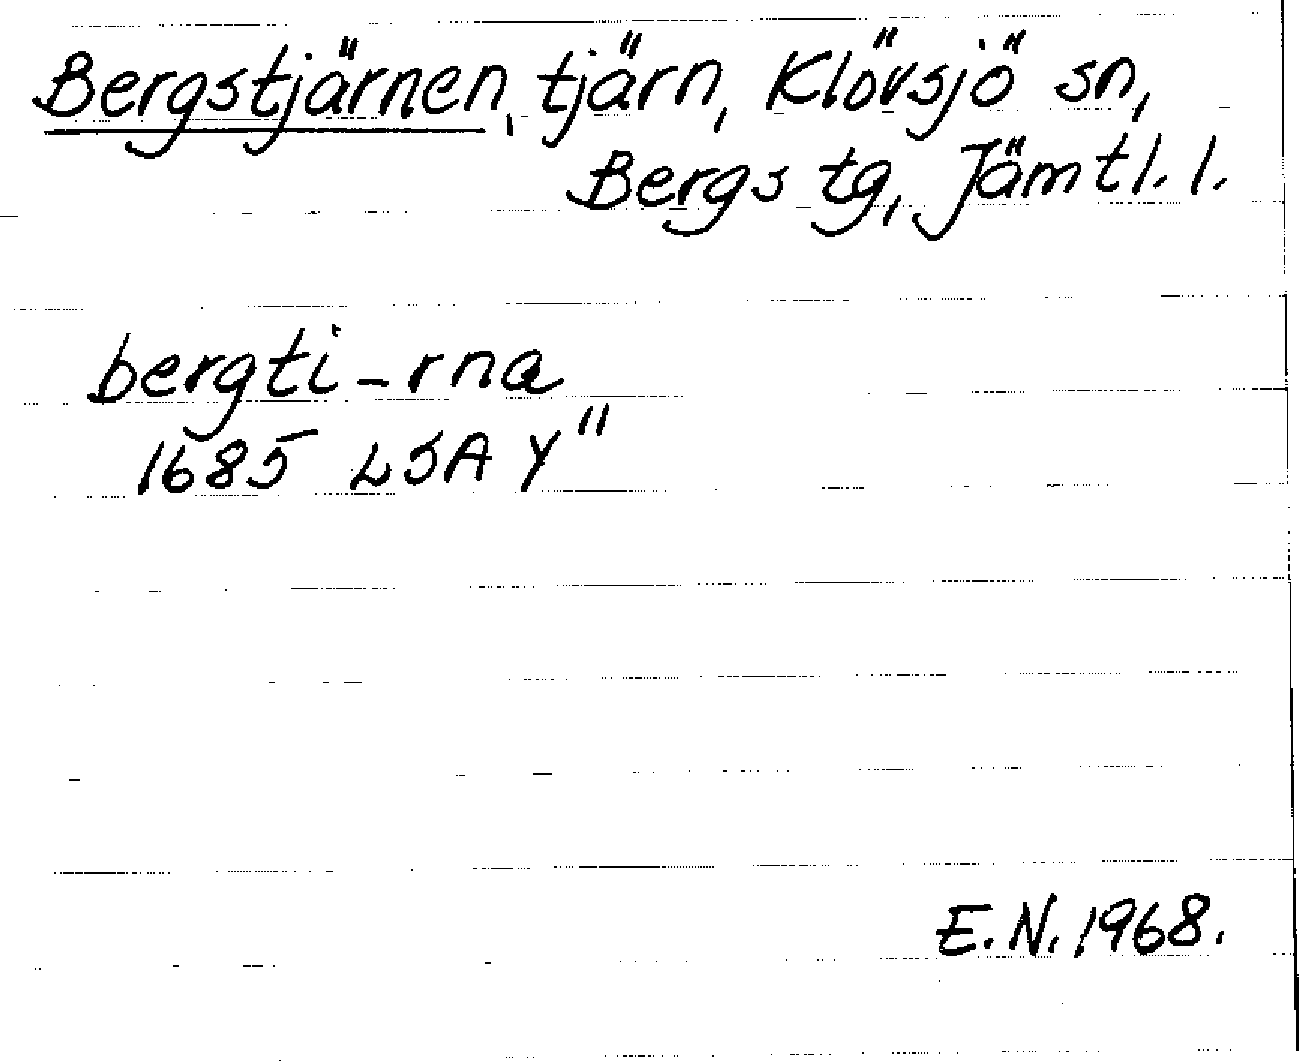 Bergstjärnen, tjärn, Klövsjö sn,
Bergs tg, Jämtl. l.
bergti-rna
1685 LSA Y"
E.N. 1968.